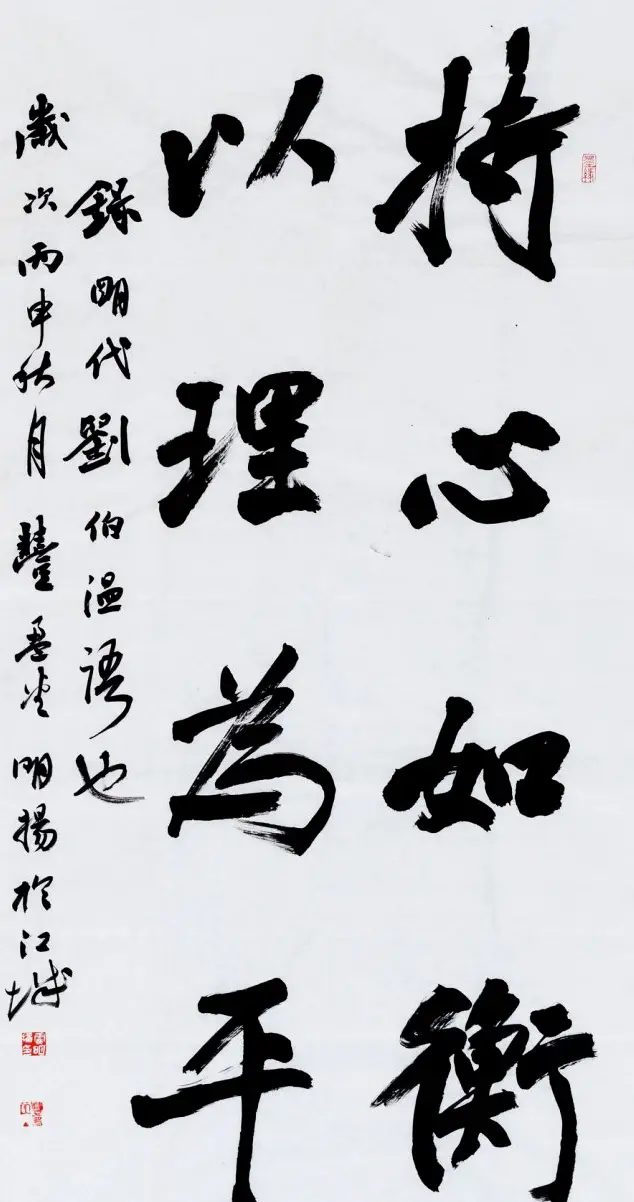 持心如衡
以理為平
錄明代劉伯温語也
歲次丙申秋月豐盈堂明揚於江城